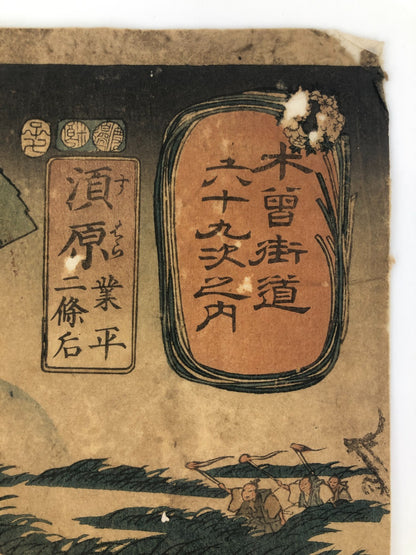 木曾街道
六十九次之内
須原
すはら
業平
二條后